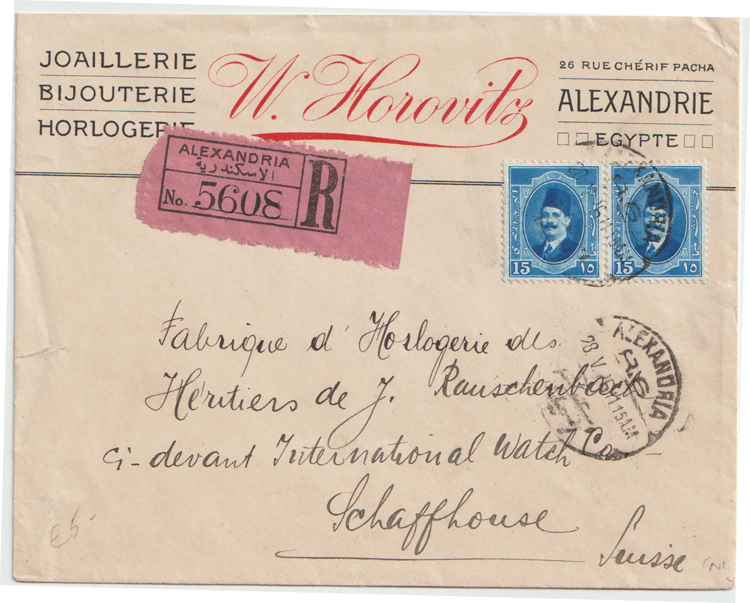 JOAILLERIE
BIJOUTERIE
HORLOGERIE
W. Horovitz
26 RUE CHÉRIF PACHA
ALEXANDRIE
EGYPTE
ALEXANDRIA
الاسكندرية
No. 5608
R
15 ١٥
15 ١٥
ALEXANDRIA
Fabrique d' Horlogerie des
Héritiers de J. Rauschenbach
ci-devant International Watch Co
Schaffhouse
Suisse
ALEXANDRIA
28 V 11 15 AM